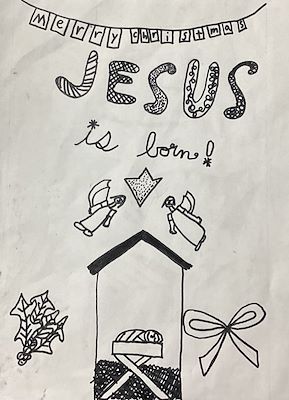 Merry christmas
JESUS
is born!